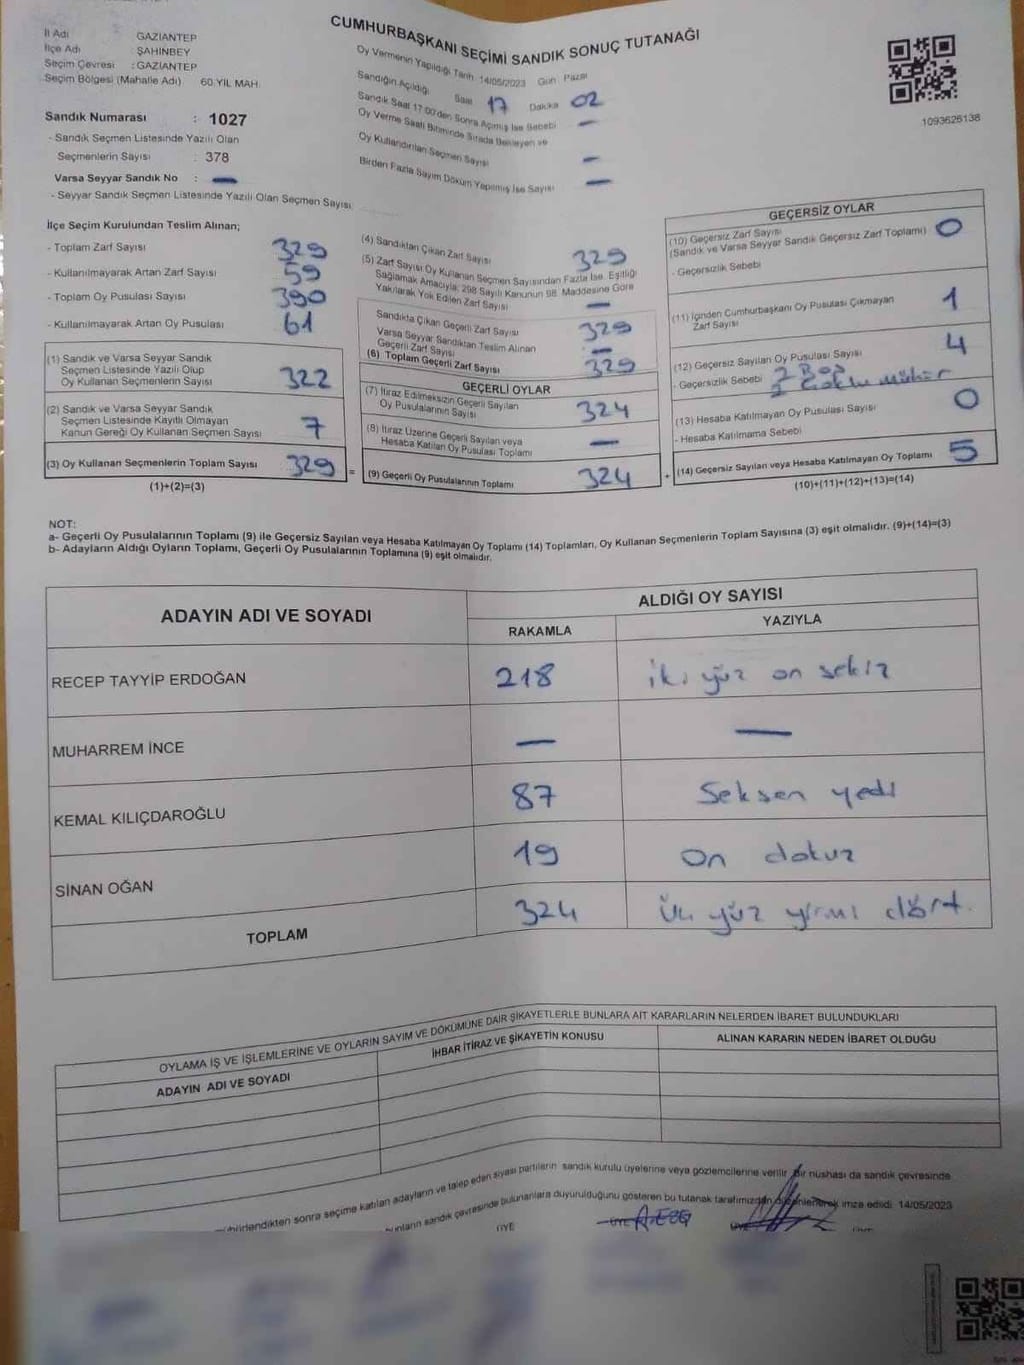 CUMHURBAŞKANI SEÇİMİ SANDIK SONUÇ TUTANAĞI
İl Adı GAZİANTEP
İlçe Adı ŞAHİNBEY
Seçim Çevresi : GAZİANTEP
Seçim Bölgesi (Mahalle Adı) 60.YIL MAH.
Sandık Numarası : 1027
- Sandık Seçmen Listesinde Yazılı Olan
Seçmenlerin Sayısı : 378
Varsa Seyyar Sandık No : —
- Seyyar Sandık Seçmen Listesinde Yazılı Olan Seçmen Sayısı
Oy Vermenin Yapıldığı Tarih 14/05/2023 Gün Pazar
Sandığın Açıldığı Saat 17 Dakika 02
Sandık Saat 17:00'den Sonra Açılmış İse Sebebi —
Oy Verme Saati Bitiminde Sırada Bekleyen ve
Oy Kullandırılan Seçmen Sayısı —
Birden Fazla Sayım Döküm Yapılmış İse Sayısı —
1093625138
İlçe Seçim Kurulundan Teslim Alınan;
- Toplam Zarf Sayısı 329
- Kullanılmayarak Artan Zarf Sayısı 59
- Toplam Oy Pusulası Sayısı 390
- Kullanılmayarak Artan Oy Pusulası 61
(1) Sandık ve Varsa Seyyar Sandık
Seçmen Listesinde Yazılı Olup
Oy Kullanan Seçmenlerin Sayısı 322
(2) Sandık ve Varsa Seyyar Sandık
Seçmen Listesinde Kayıtlı Olmayan
Kanun Gereği Oy Kullanan Seçmen Sayısı 7
(3) Oy Kullanan Seçmenlerin Toplam Sayısı 329 =
(1)+(2)=(3)
(4) Sandıktan Çıkan Zarf Sayısı 329
(5) Zarf Sayısı Oy Kullanan Seçmen Sayısından Fazla İse, Eşitliği
Sağlamak Amacıyla; 298 Sayılı Kanunun 98. Maddesine Göre
Yakılarak Yok Edilen Zarf Sayısı —
Sandıkta Çıkan Geçerli Zarf Sayısı 329
Varsa Seyyar Sandıktan Teslim Alınan
Geçerli Zarf Sayısı —
(6) Toplam Geçerli Zarf Sayısı 329
GEÇERLİ OYLAR
(7) İtiraz Edilmeksizin Geçerli Sayılan
Oy Pusulalarının Sayısı 324
(8) İtiraz Üzerine Geçerli Sayılan veya
Hesaba Katılan Oy Pusulası Toplamı —
(9) Geçerli Oy Pusulalarının Toplamı 324 +
GEÇERSİZ OYLAR
(10) Geçersiz Zarf Sayısı
(Sandık ve Varsa Seyyar Sandık Geçersiz Zarf Toplamı) 0
- Geçersizlik Sebebi
(11) İçinden Cumhurbaşkanı Oy Pusulası Çıkmayan
Zarf Sayısı 1
(12) Geçersiz Sayılan Oy Pusulası Sayısı 4
- Geçersizlik Sebebi 2 Boş
2 Çoklu mühür
(13) Hesaba Katılmayan Oy Pusulası Sayısı 0
- Hesaba Katılmama Sebebi
(14) Geçersiz Sayılan veya Hesaba Katılmayan Oy Toplamı 5
(10)+(11)+(12)+(13)=(14)
NOT:
a- Geçerli Oy Pusulalarının Toplamı (9) ile Geçersiz Sayılan veya Hesaba Katılmayan Oy Toplamı (14) Toplamları, Oy Kullanan Seçmenlerin Toplam Sayısına (3) eşit olmalıdır. (9)+(14)=(3)
b- Adayların Aldığı Oyların Toplamı, Geçerli Oy Pusulalarının Toplamına (9) eşit olmalıdır.
ADAYIN ADI VE SOYADI ALDIĞI OY SAYISI
RAKAMLA YAZIYLA
RECEP TAYYİP ERDOĞAN 218 iki yüz on sekiz
MUHARREM İNCE — —
KEMAL KILIÇDAROĞLU 87 Seksen yedi
SİNAN OĞAN 19 on dokuz
TOPLAM 324 Üç yüz yirmi dört.
OYLAMA İŞ VE İŞLEMLERİNE VE OYLARIN SAYIM VE DÖKÜMÜNE DAİR ŞİKAYETLERLE BUNLARA AİT KARARLARIN NELERDEN İBARET BULUNDUKLARI
ADAYIN ADI VE SOYADI İHBAR İTİRAZ VE ŞİKAYETİN KONUSU ALINAN KARARIN NEDEN İBARET OLDUĞU
sonra seçime katılan adayların ve talep eden siyasi partilerin sandık kurulu üyelerine veya gözlemcilerine verilir. Bir nüshası da sandık çevresinde
sandık çevresinde bulunanlara duyurulduğunu gösteren bu tutanak tarafımızdan düzenlenerek imza edildi. 14/05/2023
ÜYE ÜYE ÜYE